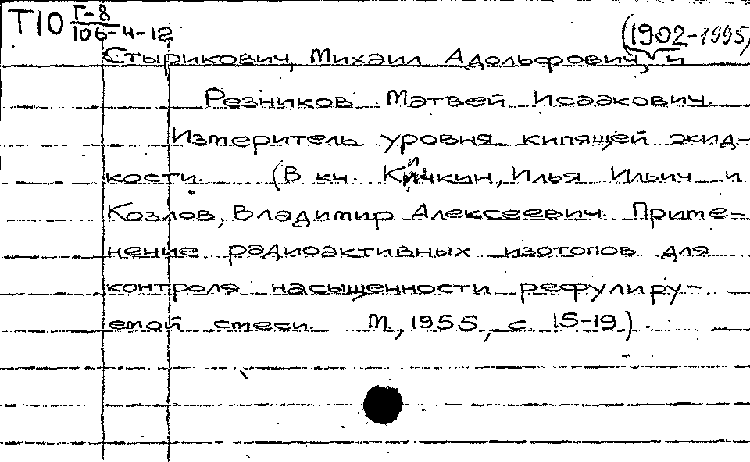 Т10 Г-8
106-4-12
(1902-1995)
Стырикович, Михаил Адольфович, и
Резников Матвей Исаакович.
Измеритель уровня кипящей жид-
кости. (В кн. Кичкин, Илья Ильич и
Козлов, Владимир Алексеевич. Приме-
нение радиоактивных изотопов для
контроля насыщенности рефулиру-
емой смеси. М, 1955, с. 15-19).